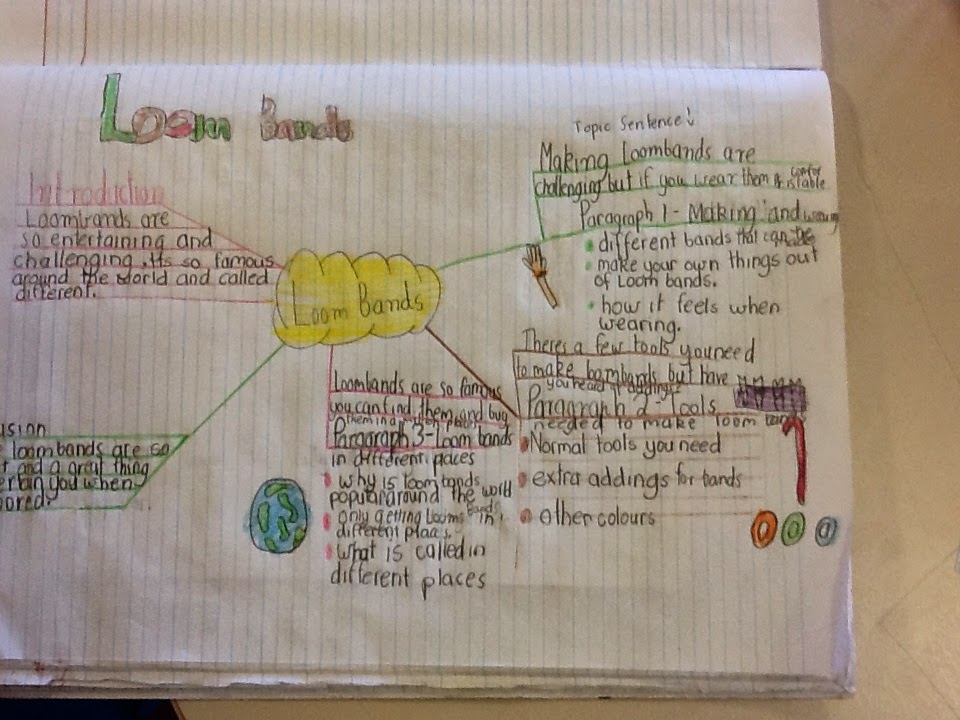 Loom Bands
Introduction
Loombands are
so entertaining and
challenging, Its so famous
around the world and called
different.
Loom Bands
Topic Sentence!
Making loombands are
challenging but if you wear them
Paragraph 1 - Making and
different bands that can be
make your own things out
of Loom bands.
how it feels when
wearing.
Theres a few tools you need
to make but have
Paragraph 2 Tools
needed to make loom
Normal tools you need
extra addings for bands
other colours
Loombands are so famous
you can find them and buy
them in
Paragraph 3 - Loom bands
in different places
why is loom bands
popular around the world
only getting looms bands in
different plaas.
what is called in
different places
usion
loombands are so
and a great thing
ertain you when
ored.